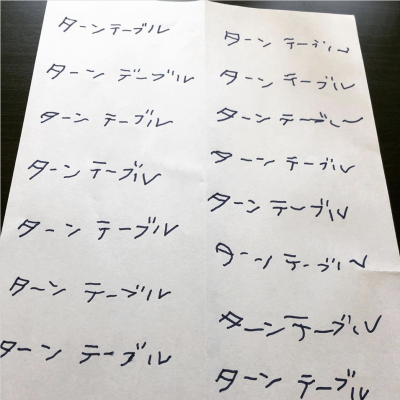 ターンテーブル
ターン テーブル
ターン テーブル
ターン テーブル
ターン テーブル
ターン テーブル
ターン テーブル
ターン テーブル
ターン テーブル
ターン テーブル
ターン テーブル
ターン テーブル
ターン テーブル
ターンテーブル
ターン テーブル